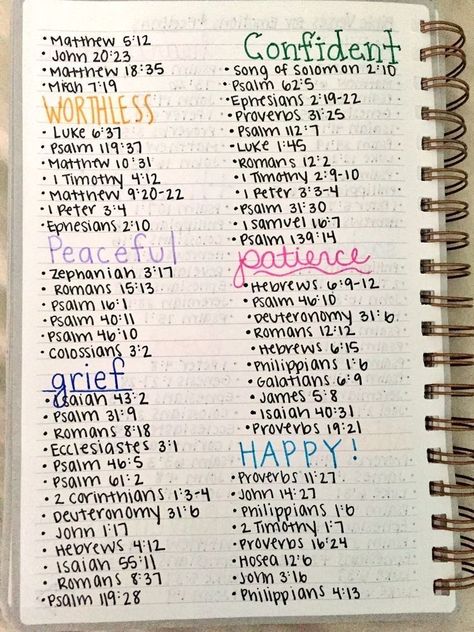 • Matthew 5:12
• John 20:23
• Matthew 18:35
• Micah 7:19
WORTHLESS
• Luke 6:37
• Psalm 119:37
• Matthew 10:31
• 1 Timothy 4:12
• Matthew 9:20-22
• 1 Peter 3:4
• Ephesians 2:10
Peaceful
• Zephaniah 3:17
• Romans 15:13
• Psalm 16:1
• Psalm 40:11
• Psalm 46:10
• Colossians 3:2
grief
• Isaiah 43:2
• Psalm 31:9
• Romans 8:18
• Ecclesiastes 3:1
• Psalm 46:5
• Psalm 61:2
• 2 Corinthians 1:3-4
• Deuteronomy 31:6
• John 1:17
• Hebrews 4:12
• Isaiah 55:11
• Romans 8:37
• Psalm 119:28
Confident
• Song of Solomon 2:10
• Psalm 62:5
• Ephesians 2:19-22
• Proverbs 31:25
• Psalm 112:7
• Luke 1:45
• Romans 12:2
• 1 Timothy 2:9-10
• 1 Peter 3:3-4
• Psalm 31:30
• 1 Samuel 16:7
• Psalm 139:14
patience
• Hebrews 6:9-12
• Psalm 46:10
• Deuteronomy 31:6
• Romans 12:12
• Hebrews 6:15
• Philippians 1:6
• Galatians 6:9
• James 5:8
• Isaiah 40:31
• Proverbs 19:21
HAPPY!
• Proverbs 11:27
• John 14:27
• Philippians 1:6
• 2 Timothy 1:7
• Proverbs 16:24
• Hosea 12:6
• John 3:16
• Philippians 4:13